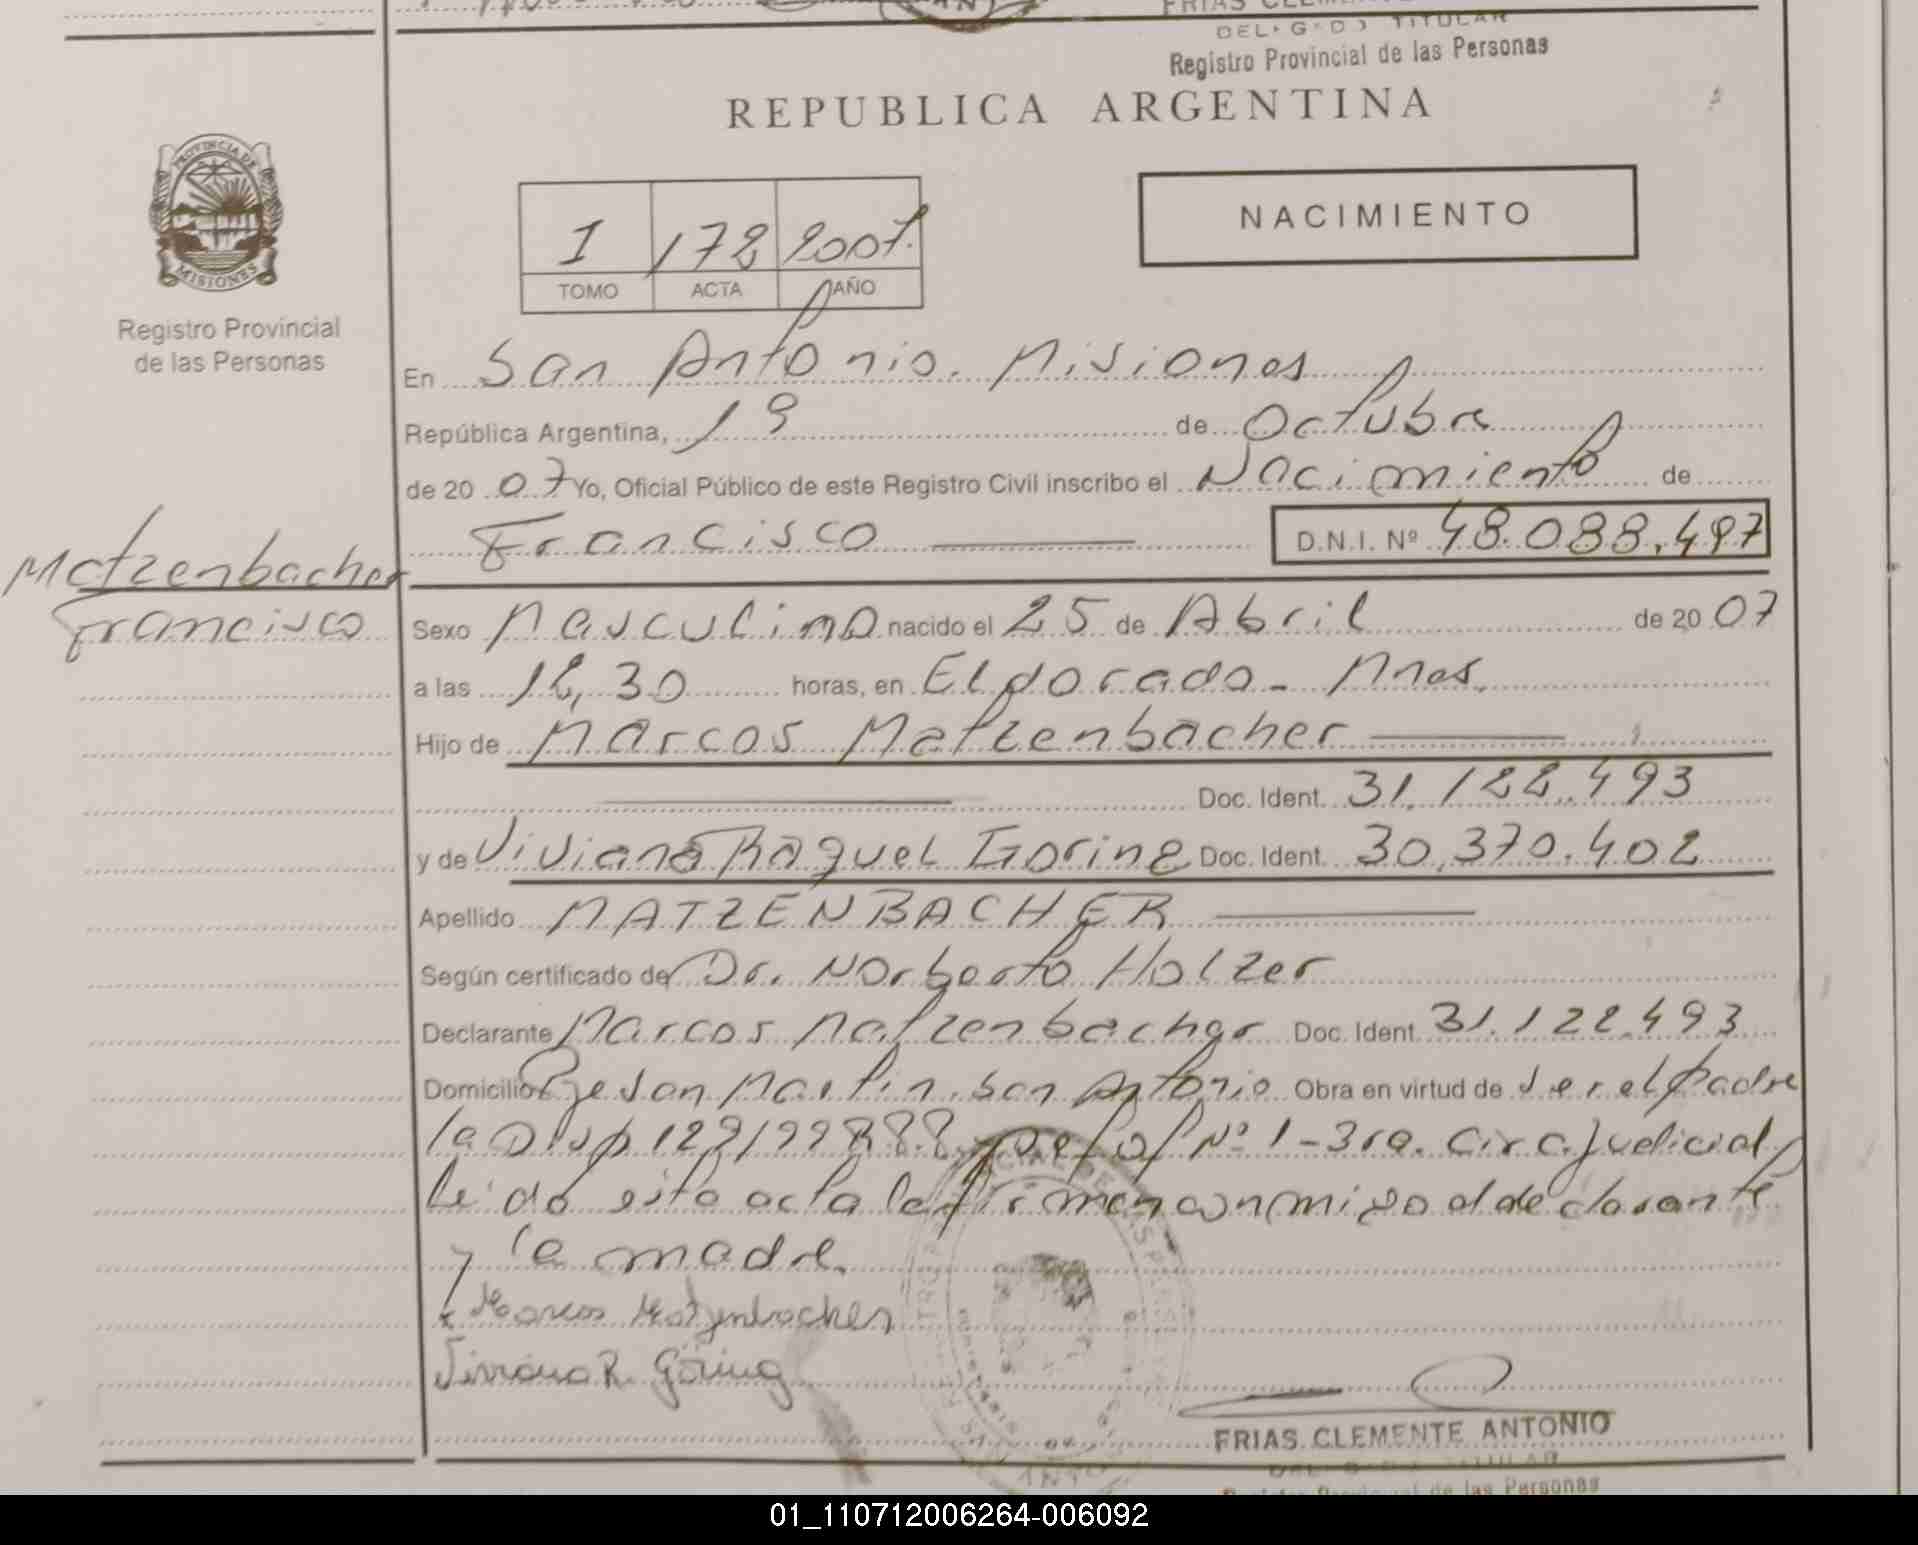 FRIAS CLEMENTE
DEL·G·DO TITULAR
Registro Provincial de las Personas
REPUBLICA ARGENTINA
PROVINCIA DE
MISIONES
Registro Provincial
de las Personas
I 172 2007.
TOMO ACTA AÑO
NACIMIENTO
En San Antonio. Misiones
República Argentina, 19 de Octubre
de 20 07 Yo, Oficial Público de este Registro Civil inscribo el Nacimiento de
Francisco D.N.I. Nº 48.088.497
Matzenbacher
Francisco
Sexo Masculino nacido el 25 de Abril de 20 07
a las horas, en Eldorado - Mnes.
Hijo de Marcos Matzenbacher
Doc. Ident. 31.122.493
y de Viviana Raquel Goring Doc. Ident. 30.370.402
Apellido MATZENBACHER
Según certificado de Dr. Norberto Holzer
Declarante Marcos Matzenbacher Doc. Ident. 31.122.493
Domicilio San Martin. San Antonio Obra en virtud de ser el padre
la Disp Nº 1-3ra. Circ. Judicial
Leido esta acta la firman conmigo el declarante
y la madre.
Marcos Matzenbacher
Viviana R. Göring
FRIAS CLEMENTE ANTONIO
Registro Provincial de las Personas
01_110712006264-006092